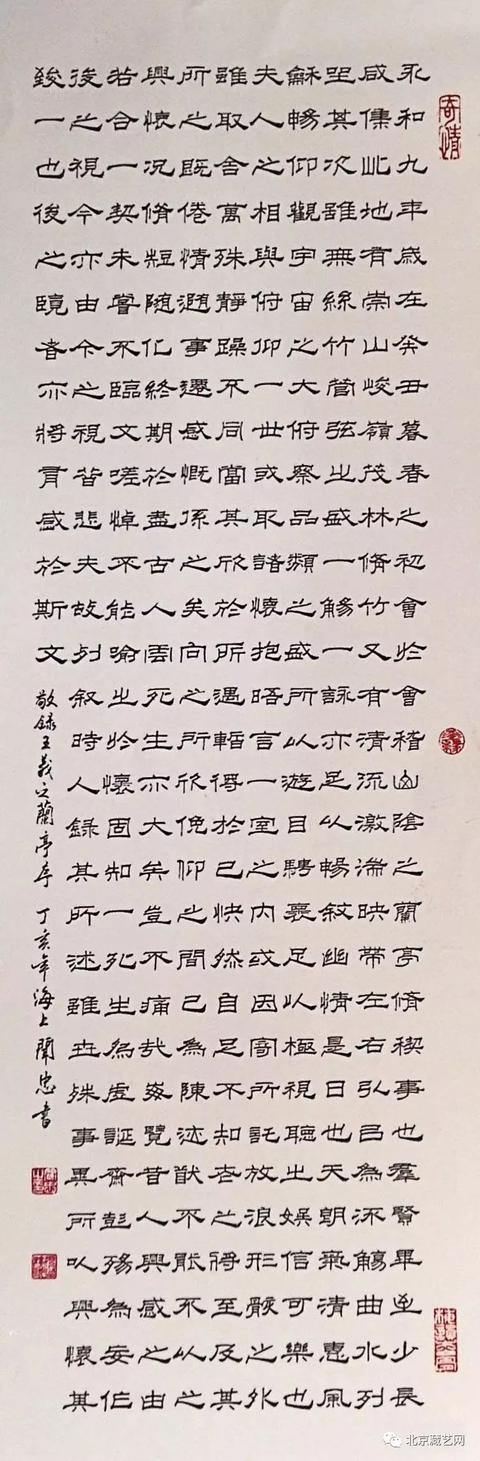 永和九年歲在癸丑暮春之初會於會稽山陰之蘭亭脩禊事也羣賢畢至少長
咸集此地有崇山峻嶺茂林脩竹又有清流激湍映帶左右引㠯為流觴曲水列
坐其次雖無絲竹管弦之盛一觴一詠亦足以暢敘幽情是日也天朗氣清惠風
龢暢仰觀宇宙之大俯察品類之盛所以遊目騁褱足以極視聽之娛信可樂也
夫人之相與俯仰一世或取諸懷抱晤言一室之內或因寄所託放浪形骸之外
雖取舍萬殊靜躁不同當其欣於所遇暫得於己快然自足不知老之將至及其
所之既倦情隨事遷感慨係之矣向之所欣俛仰之間已為陳迹猷不能不以之
興懷況脩短隨化終期於盡古人雲死生亦大矣豈不痛哉每覽昔人興感之由
若合一契未嘗不臨文嗟悼不能喻之於懷固知一死生為虛誕齊彭殤為妄作
後之視今亦由今之視昔悲夫故列敘時人錄其所述雖世殊事異所以興懷其
致一也後之覽者亦將有感於斯文
敬録王羲之蘭亭序 丁亥年海上聞忠書
奇情
北京藏艺网